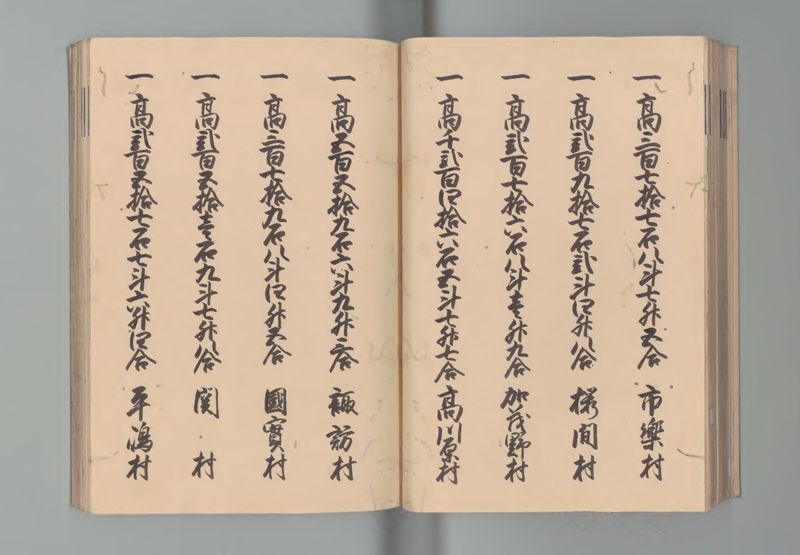 一 高三百七拾七石八斗七升五合 市樂村
一 高弐百九拾七石弐斗四升八合 桜間村
一 高弐百七拾六石八斗壱升九合 加茂野村
一 高千弐百四拾六石五斗七升七合 高川原村
一 高五百五拾九石六斗九升二合 諏訪村
一 高三百七拾九石八斗四升五合 國實村
一 高弐百五拾壱石九斗七升八合 関村
一 高弐百五拾七石七斗六升四合 平嶋村